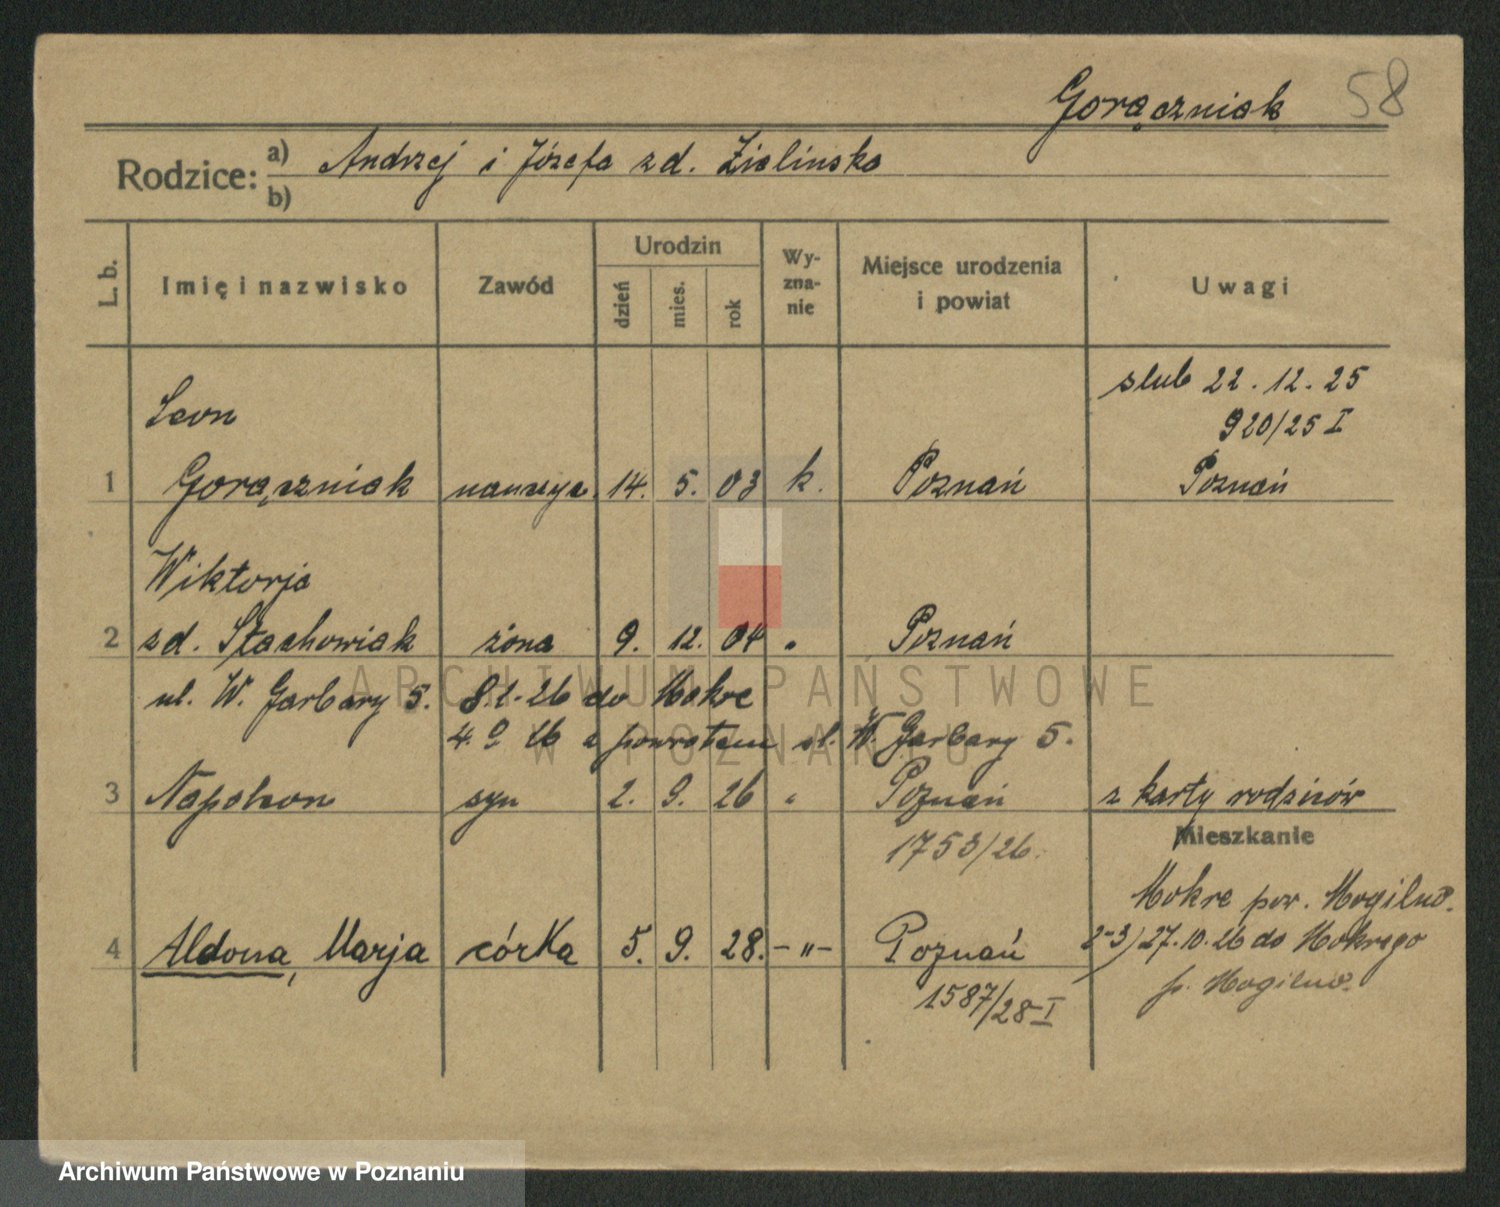 Gorączniak 58
Rodzice: a) Andrzej i Józefa zd. Zielińska
b)
L. b. Imię i nazwisko Zawód Urodzin dzień mies. rok Wy-zna-nie Miejsce urodzenia i powiat Uwagi
slub 22.12.25
Leon
920/25 I
1 Gorączniak nauczyc. 14. 5. 03 k. Poznań Poznań
Wiktorja
2 zd. Stachowiak żona 9. 12. 04 " Poznań
ARCHIWUM PAŃSTWOWE
ul. W. Garbary 5. 8.1.26 do Mokre
W POZNANIU
4. 9 26 z powrotem ul. W. Garbary 5.
3 Napoleon syn 2. 9. 26 " Poznań z karty rodziców
1753/26. Mieszkanie
Mokre pow. Mogilno.
4 Aldona, Marja córka 5. 9. 28. -"- Poznań 2-3) 27.10.26 do Mokrego
p. Mogilno.
1587/28-I
Archiwum Państwowe w Poznaniu